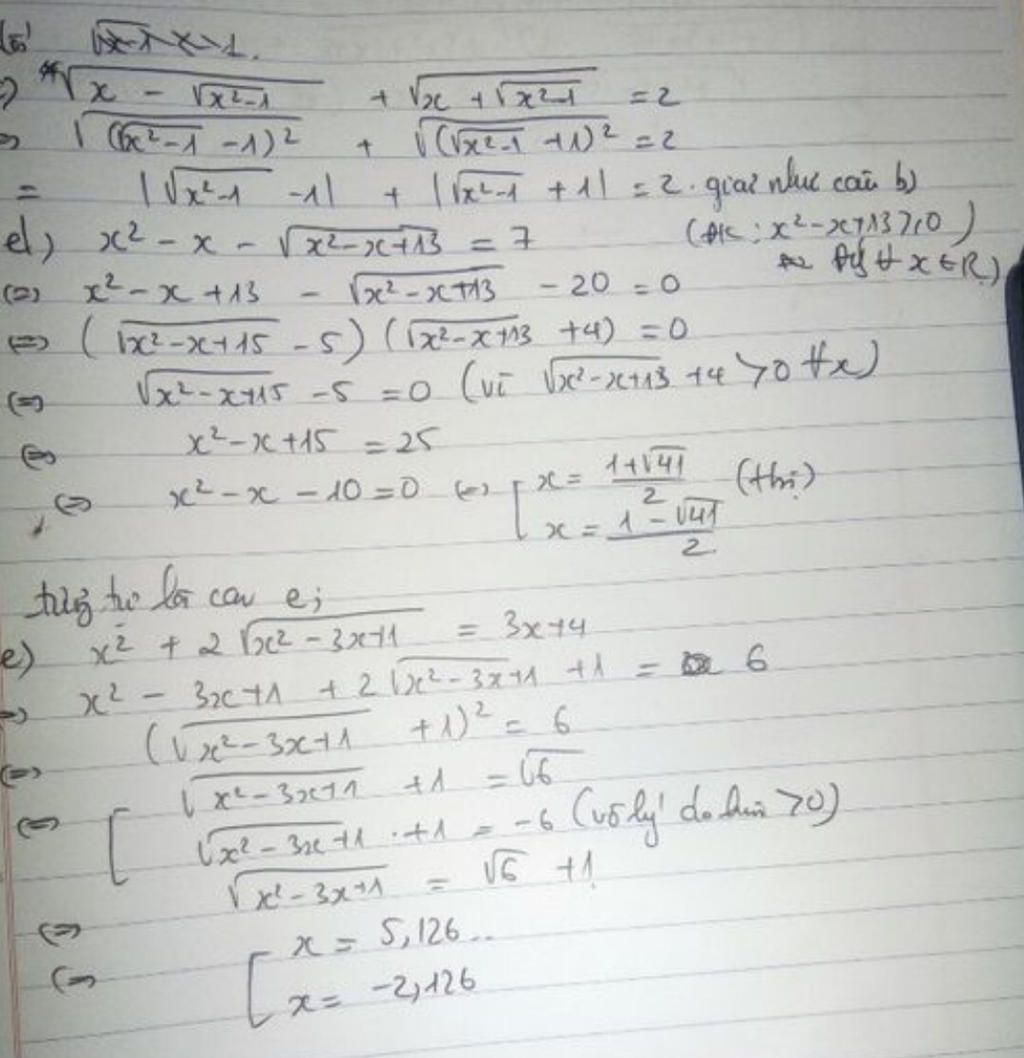 √x-1 x>1.
√(x - √(x²-1)) + √(x + √(x²-1)) = 2
√((√(x²-1) -1)²) + √((√(x²-1) +1)²) = 2
= |√(x²-1) -1| + |√(x²-1) +1| = 2. giải như câu b)
d) x² - x - √(x²-x+13) = 7 (ĐK: x²-x+13≥0)
∀ x ∈ R)
(=) x² - x + 13 - √(x²-x+13) - 20 = 0
(=) (√(x²-x+15) - 5) (√(x²-x+13) +4) = 0
(=) √(x²-x+15) - 5 = 0 (vì √(x²-x+13) +4 >0 ∀x)
(=) x²-x+15 = 25
(=) x² - x - 10 = 0 (=) [ x = (1+√41)/2 (thị)
x = (1-√41)/2
tương tự là câu e;
e) x² + 2√(x² - 3x+1) = 3x+4
=) x² - 3x+1 + 2√(x²-3x+1) +1 = 6
(=) (√(x²-3x+1) +1)² = 6
(=) [ √(x²-3x+1) +1 = √6
√(x²-3x+1) .+1 = -6 (vô lý do >0)
(=) √(x²-3x+1) = √6 +1
(=) [ x = 5,126..
x = -2,126